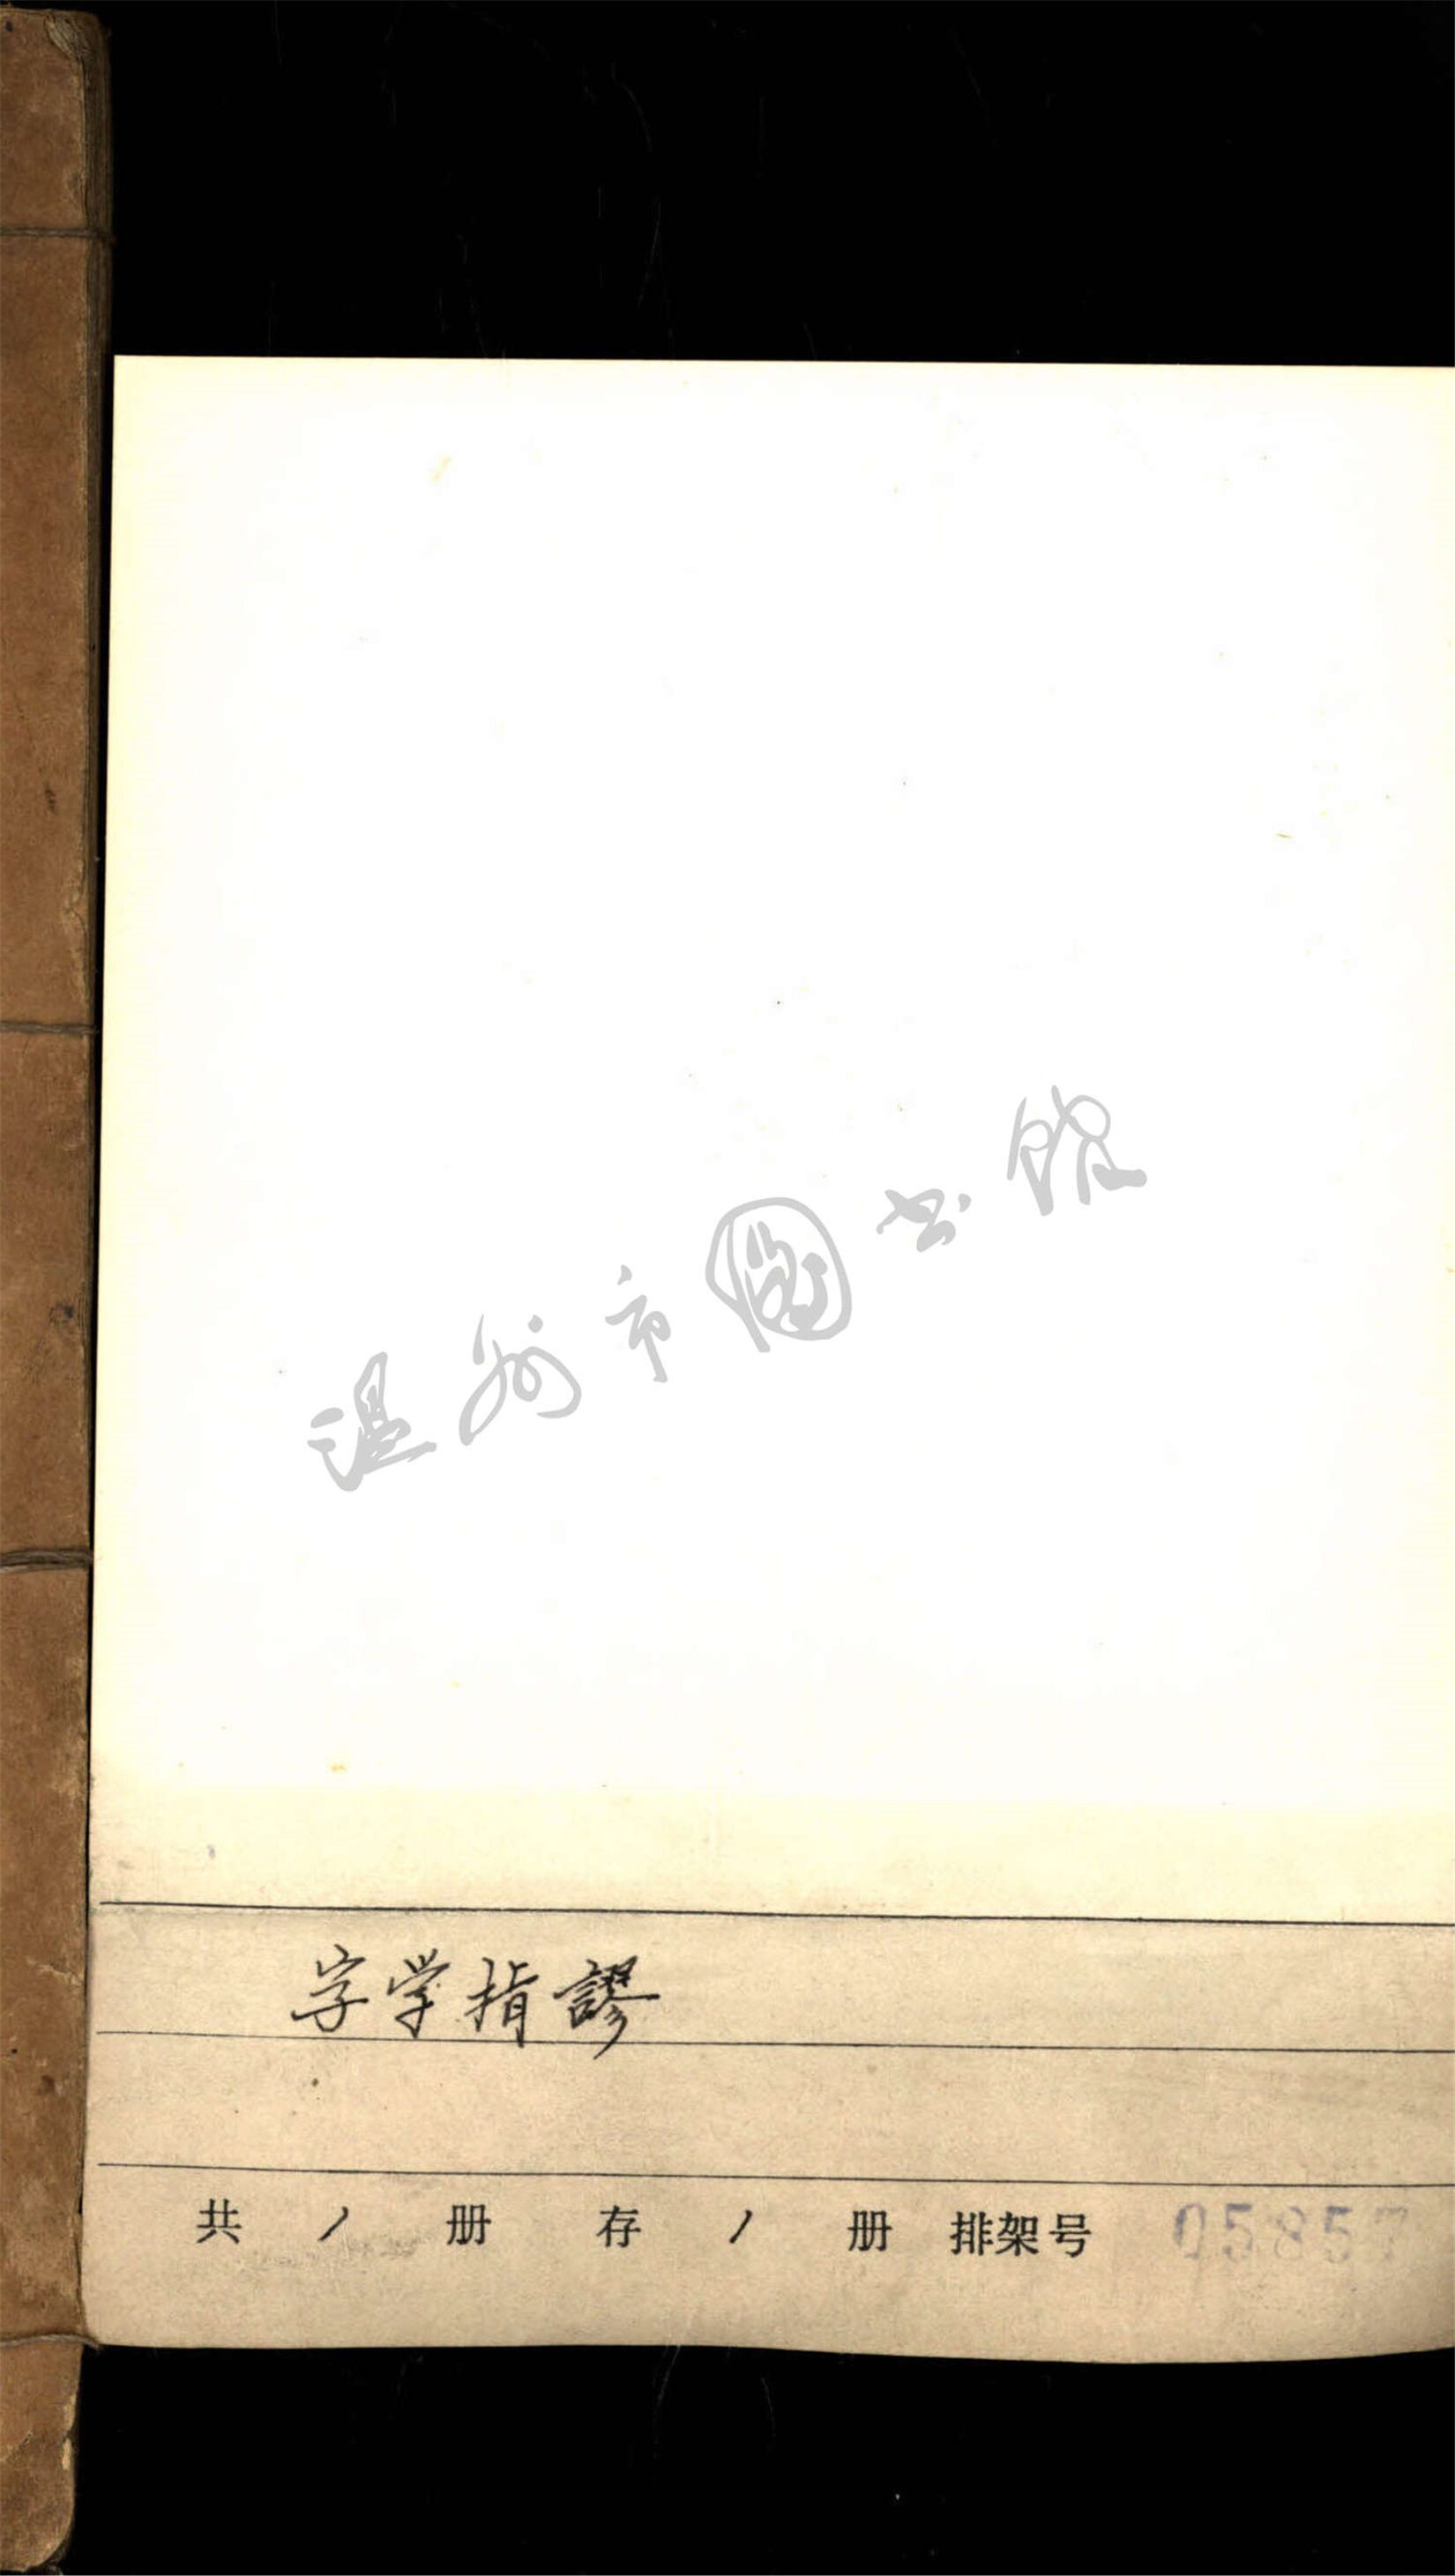 温州市图书馆
字学指謬
共 1 册 存 1 册 排架号 05857